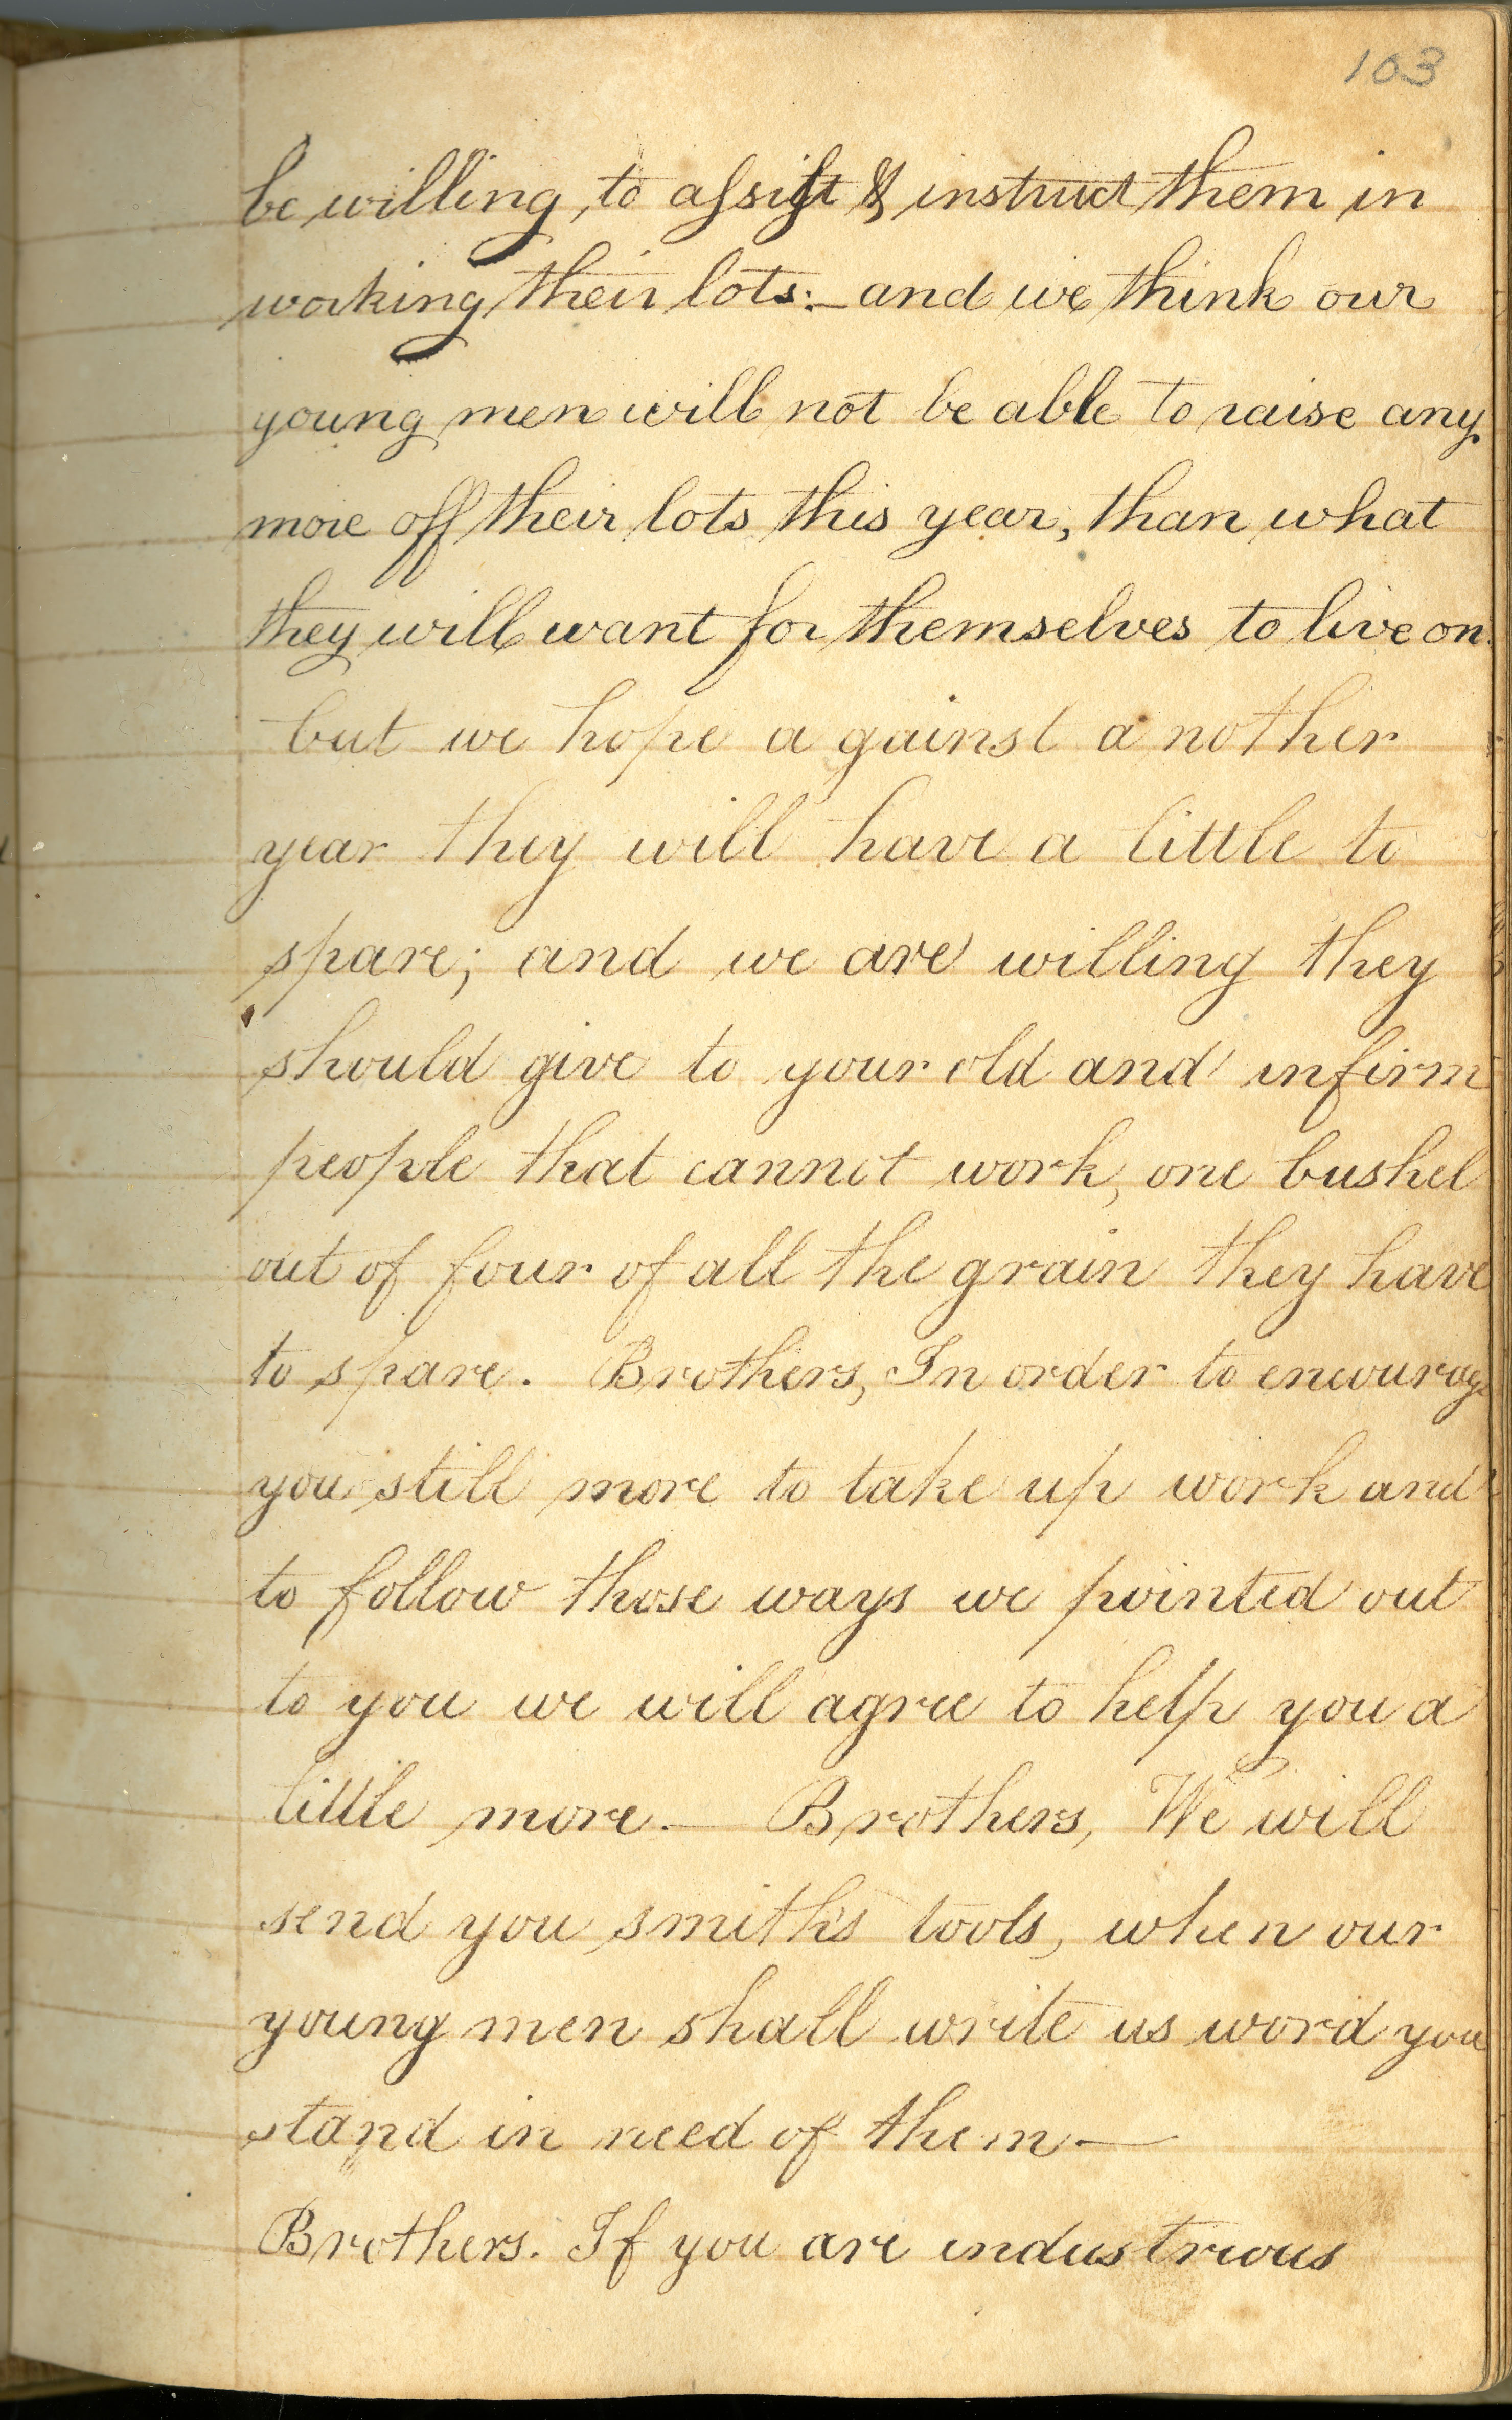 103
be willing, to assist & instruct them in
working their lots:— and we think our
young men will not be able to raise any
more off their lots this year, than what
they will want for themselves to live on.
but we hope a gainst a nother
year they will have a little to
spare; and we are willing they
should give to your old and infirm
people that cannot work, one bushel
out of four of all the grain they have
to spare. Brothers, In order to encourage
you still more to take up work and
to follow those ways we pointed out
to you we will agree to help you a
little more.— Brothers, We will
send you smith's tools, when our
young men shall write us word you
stand in need of them—
Brothers. If you are industrious